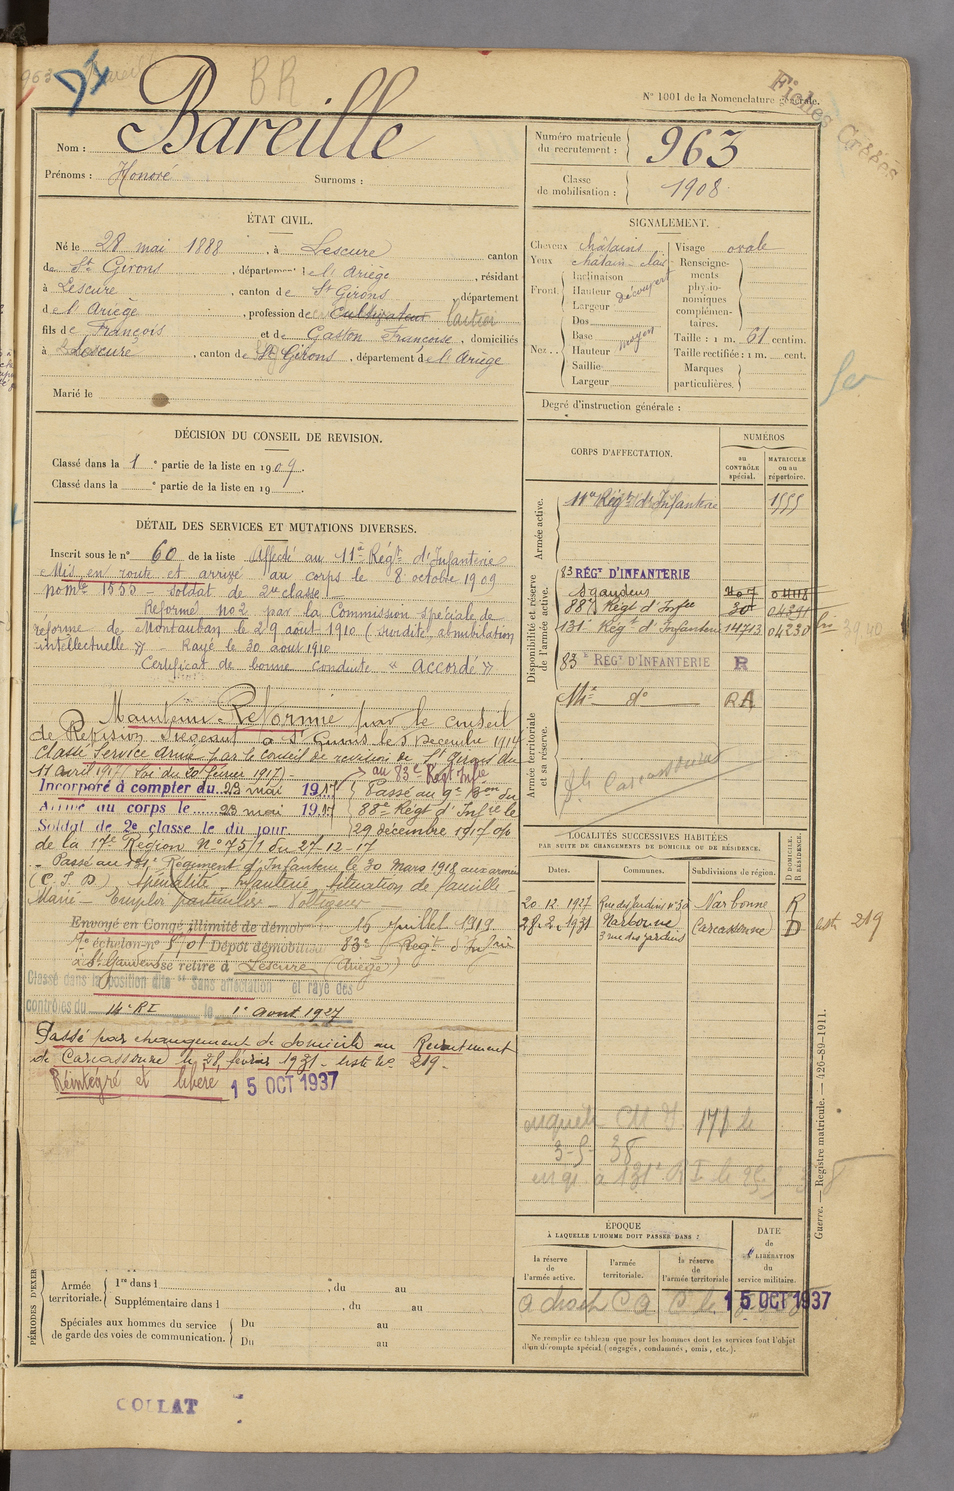 963
BR
N° 1001 de la Nomenclature générale.
Fiches Cassées
Nom : Bareille
Prénoms : Honoré Surnoms :
Numéro matricule du recrutement : 963
Classe de mobilisation : 1908
ÉTAT CIVIL.
Né le 28 mai 1888, à Lescure canton
de St Girons, département de l'Ariège, résidant
à Lescure, canton de St Girons, département
de l'Ariège, profession de Cultivateur
fils de François et de Gaston Françoise, domiciliés
à Lescure, canton de St Girons, département de l'Ariège
Marié le
SIGNALEMENT.
Cheveux châtains
Yeux châtain-clair
Front. Inclinaison
Hauteur découvert
Largeur
Nez.. Dos
Base moyen
Hauteur
Saillie
Largeur
Visage ovale
Renseignements physionomiques complémentaires.
Taille : 1 m. 61 centim.
Taille rectifiée : 1 m. cent.
Marques particulières.
Degré d'instruction générale :
DÉCISION DU CONSEIL DE REVISION.
Classé dans la 1e partie de la liste en 1909.
Classé dans la e partie de la liste en 19 .
DÉTAIL DES SERVICES ET MUTATIONS DIVERSES.
Inscrit sous le n° 60 de la liste Affecté au 11e Régt d'Infanterie
Mis en route et arrivé au corps le 8 octobre 1909
no mle 1555 – soldat de 2e classe
Réformé no 2 par la Commission spéciale de
réforme de Montauban le 29 août 1910 (surdité, obnubilation
intellectuelle) – Rayé le 30 août 1910
Certificat de bonne conduite « Accordé »
Maintenu Réformé par le conseil
de Revision siégeant à St Girons le 5 Decembre 1914
Classé Service Armé par le Conseil de revision de St Girons du
11 avril 1917 (Loi du 20 février 1917) –
au 83e Régt Infie
Incorporé à compter du 23 mai 1917
Arrivé au corps le 23 mai 1917
Soldat de 2e classe le du jour
Passé au 9e Bon du
88e Régt d'Infie le
29 décembre 1917 o/o
de la 17e Région No 75/1 du 27-12-17
– Passé au 131e Régiment d'Infanterie le 30 mars 1918 aux armées
(C. I. D.) Spécialité – Infanterie – Situation de famille –
Marié – Emploi particulier – Voltigeur –
Envoyé en Congé illimité de démob 15 Juillet 1919
echelon no Dépôt démobilis 83e Regt d'Infrie
à St Gaudens se retire à Lescure (Ariège)
Classé dans la position dite "Sans affectation" et rayé des
contrôles du 14e RI le 1er avril 1927
Passé par changement de domicile au Recrutement
de Carcassonne le 28 février 1931 – liste no 219.
Réintégré et libéré 15 OCT 1937
CORPS D'AFFECTATION.
NUMÉROS
au CONTRÔLE spécial.
MATRICULE ou au répertoire.
Armée active.
11e Régt d'Infanterie 1555
Disponibilité et réserve de l'armée active.
83 RÉGT D'INFANTERIE
St gaudens 407
88e Régt d'Infie 30 04391
131e Régt d'Infanterie 14713 04230
83e RÉGT D'INFANTERIE R
Armée territoriale et sa réserve.
14e do RA
Carcassonne
LOCALITÉS SUCCESSIVES HABITÉES
PAR SUITE DE CHANGEMENTS DE DOMICILE OU DE RÉSIDENCE.
Dates. Communes. Subdivisions de région. D DOMICILE. R RÉSIDENCE.
20.12.1927 Rue des Jardins no 30 Narbonne R
28.2.1931 Narbonne 3 rue des jardins Carcassonne D liste 219
171
3-5- 38
à 131e R I le
ÉPOQUE
À LAQUELLE L'HOMME DOIT PASSER DANS :
la réserve de l'armée active.
l'armée territoriale.
la réserve de l'armée territoriale
DATE de LIBÉRATION du service militaire.
15 OCT 1937
Ne remplir ce tableau que pour les hommes dont les services font l'objet
d'un décompte spécial (engagés, condamnés, omis, etc.).
PÉRIODES D'EXER
Armée territoriale. 1re dans l , du au
Supplémentaire dans l , du au
Spéciales aux hommes du service de garde des voies de communication. Du au
Du au
Guerre. — Registre matricule. — 426-89-1911.
COLLAT